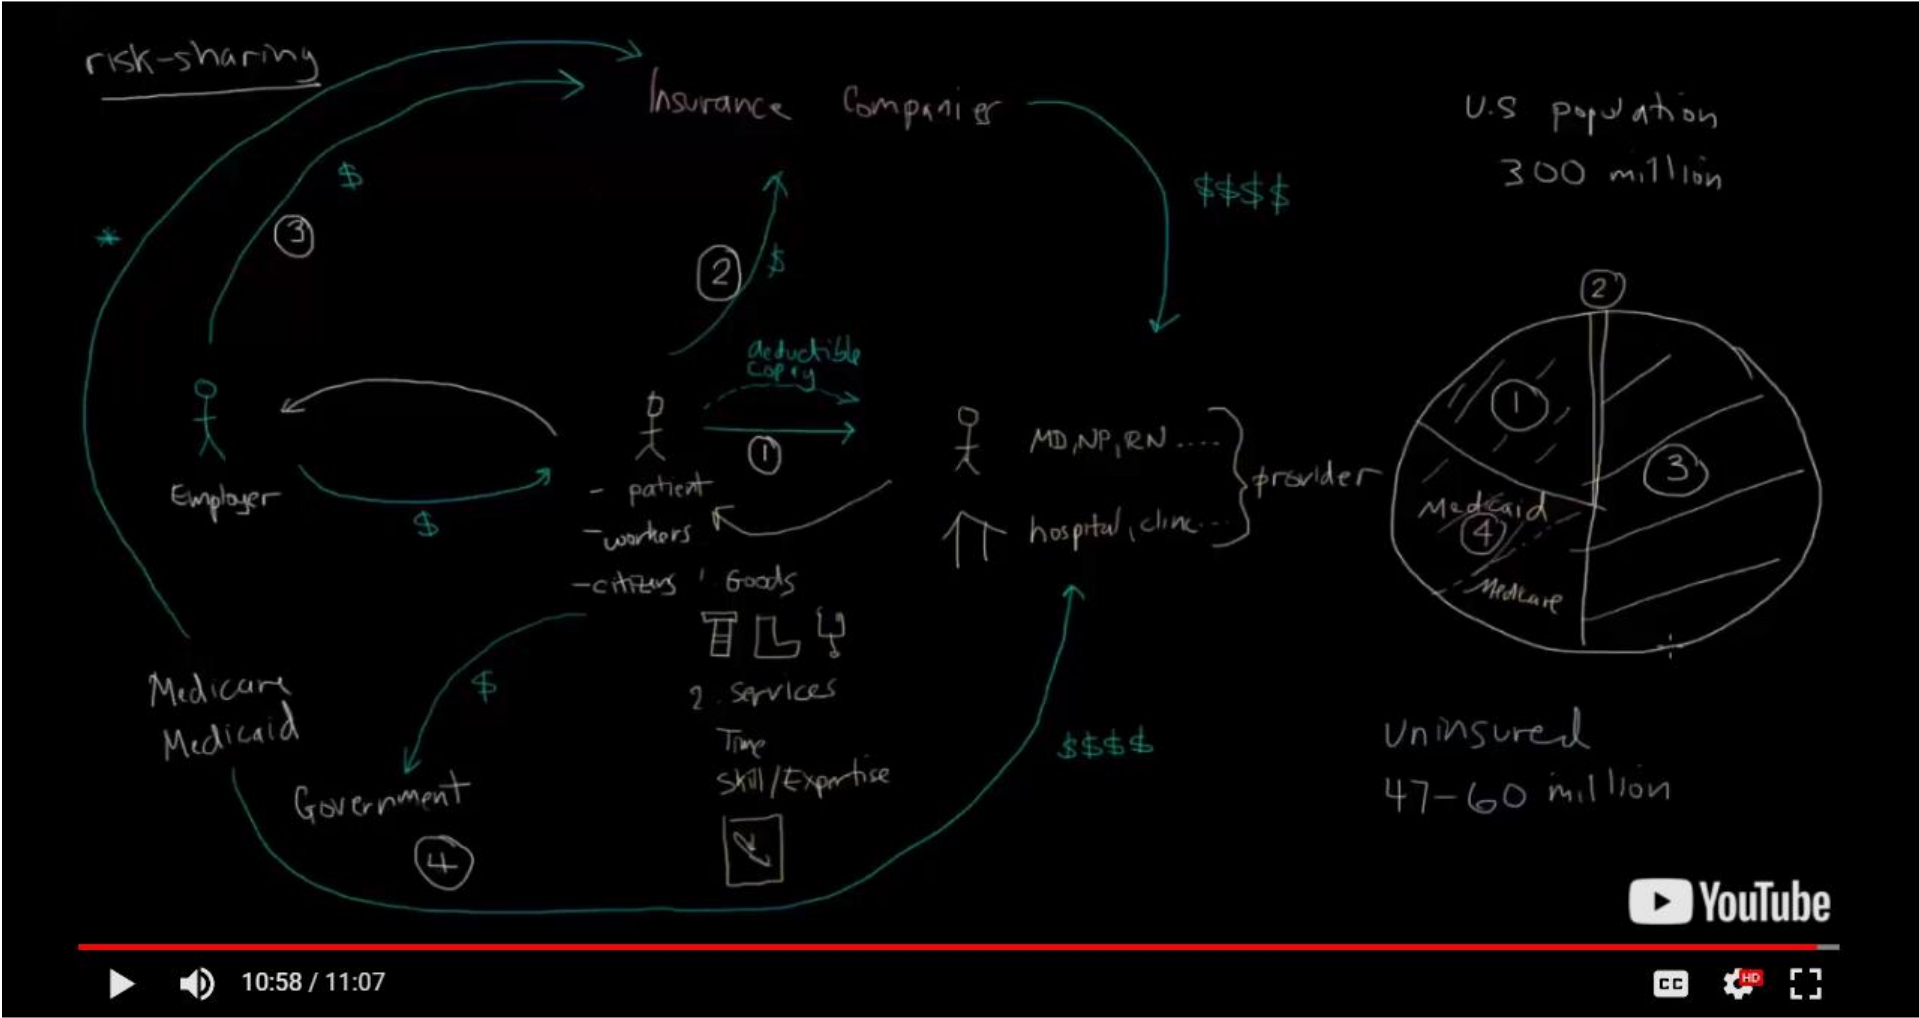 risk-sharing
Insurance Companies
$
3
*
2
$
$$$$
U.S population
300 million
deductible
copay
1
Employer
$
- patient
- workers
- citizens
MD, NP, RN ....
hospital, clinc...
provider
1. Goods
2. Services
Time
Skill/Expertise
$
Medicare
Medicaid
Government
4
$$$$
2
1
3
Medicaid
4
Medicare
Uninsured
47-60 million
YouTube
10:58 / 11:07
CC
HD